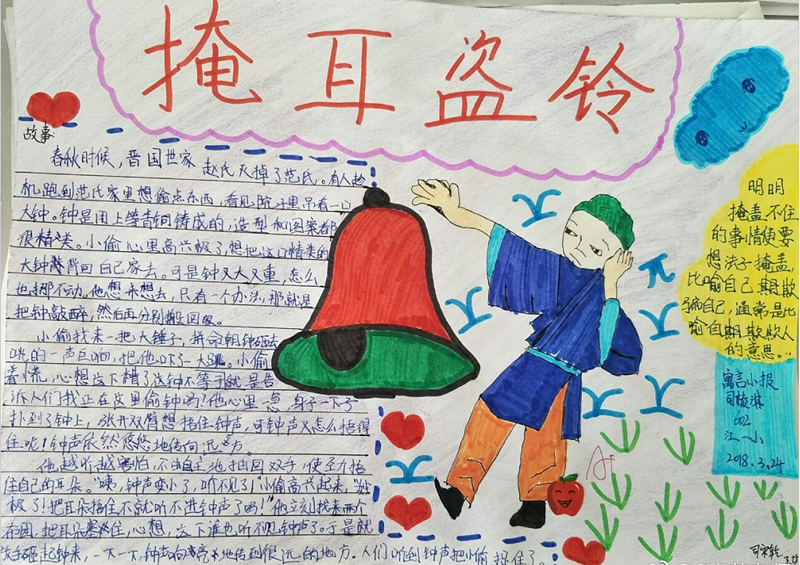 掩耳盗铃
故事
春秋时候,晋国世家赵氏灭掉了范氏。有人趁
机跑到范氏家里想偷点东西,看见院子里吊着一口
大钟。钟是用上等青铜铸成的,造型和图案都
很精美。小偷心里高兴极了,想把这口精美的
大钟背回自己家去。可是钟又大又重,怎么
也挪不动。他想来想去,只有一个办法,那就是
把钟敲碎,然后再分别搬回家。
小偷找来一把大锤子,拼命朝钟砸去
咣的一声巨响,把他吓了一大跳。小偷
着慌,心想这下糟了,这钟不等于就是告
诉人们我正在这里偷钟吗?他心里一急,身子一下子
扑到了钟上,张开双臂想捂住钟声,可钟声又怎么捂得
住呢!钟声依然悠悠地传向远方。
他越听越害怕,不由自主地抽回双手,使劲
捂住自己的耳朵。"咦,钟声变小了,听不见了!"小偷高兴起来,"
极了!把耳朵捂住不就听不进钟声了吗!"他立刻找来两个
布团,把耳朵塞住,心想,这下谁也听不见钟声了。于是就
放手砸起钟来,一下一下,钟声响亮地传到很远的地方。人们听到钟声把小偷捉住了。
明明
掩盖不住
的事情偏要
想法子掩盖,
比喻自己欺骗
自己,通常是比
喻自欺欺人
的意思。
寓言小报
江一小
2018.3.24
A+